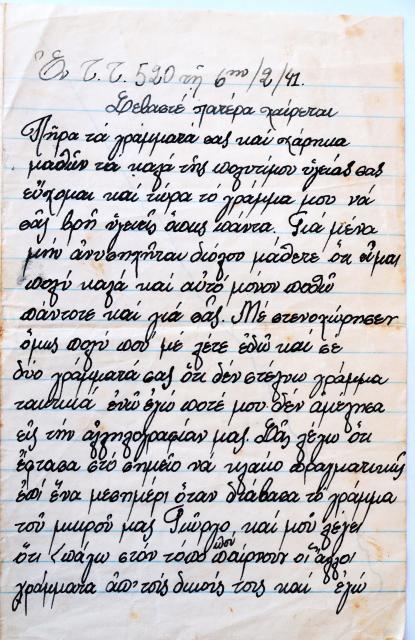 Ἐν Τ.Τ. 520 τῇ 6ην/2/41.
Σεβαστέ πατέρα χαίρεται
Πῆρα τά γράμματά σας καί χάρηκα
μαθών τά καλά τῆς πολυτίμου ὑγείας σας
εὔχομαι καί τώρα τό γράμμα μου νά
σᾶς βρῇ ὑγειεῖς ὅπως πάντα. Γιά μένα
μήν ἀνησυχῆται διόλου μάθετε ὅτι εἶμαι
πολύ καλά καί αὐτό μόνον ποθῶ
πάντοτε καί γιά σᾶς. Μέ στενοχώρησεν
ὅμως πολύ πού μέ λέτε ἐδῶ καί σέ
δύο γράμματά σας ὅτι δέν στέλνω γράμμα
τακτικά ἐνῶ ἐγώ ποτέ μου δέν ἀμέλησα
εἰς τήν ἀλληλογραφίαν μας. Σᾶς λέγω ὅτι
ἔφτασα στό σημεῖο νά κλαίω πραγματικῶς
ἐπί ἕνα μεσημέρι ὅταν διάβασα τό γράμμα
τοῦ μικροῦ μας Γιώργο, καί μοῦ λέγει
ὅτι πάγω στόν τόπο ποῦ παίρνουν οἱ ἄλλοι
γράμματα ἀπ' τούς δικούς τους καί ἐγώ